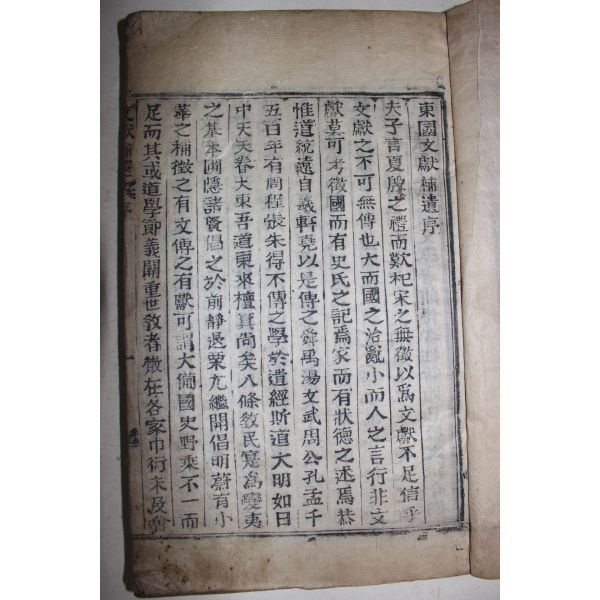 東國文獻補遺序
夫子言夏殷之禮而歎杞宋之無徵以爲文獻不足信乎
文獻之不可無傳也大而國之治亂小而人之言行非文
獻莫可考徵國而有史氏之記焉家而有狀德之述焉恭
惟道統遠自羲軒堯以是傳之舜禹湯文武周公孔孟千
五百年有周程張朱得不傳之學於遺經斯道大明如日
中天天眷大東吾道東來檀箕尚矣八條敎民寔爲變夷
之基本圃隱諸賢倡之於前靜退栗尤繼開倡明蔚有小
華之稱徵之有文傳之有獻可謂大備國史野乘不一而
足而其或道學節義關重世敎者散在各家巾衍未及會